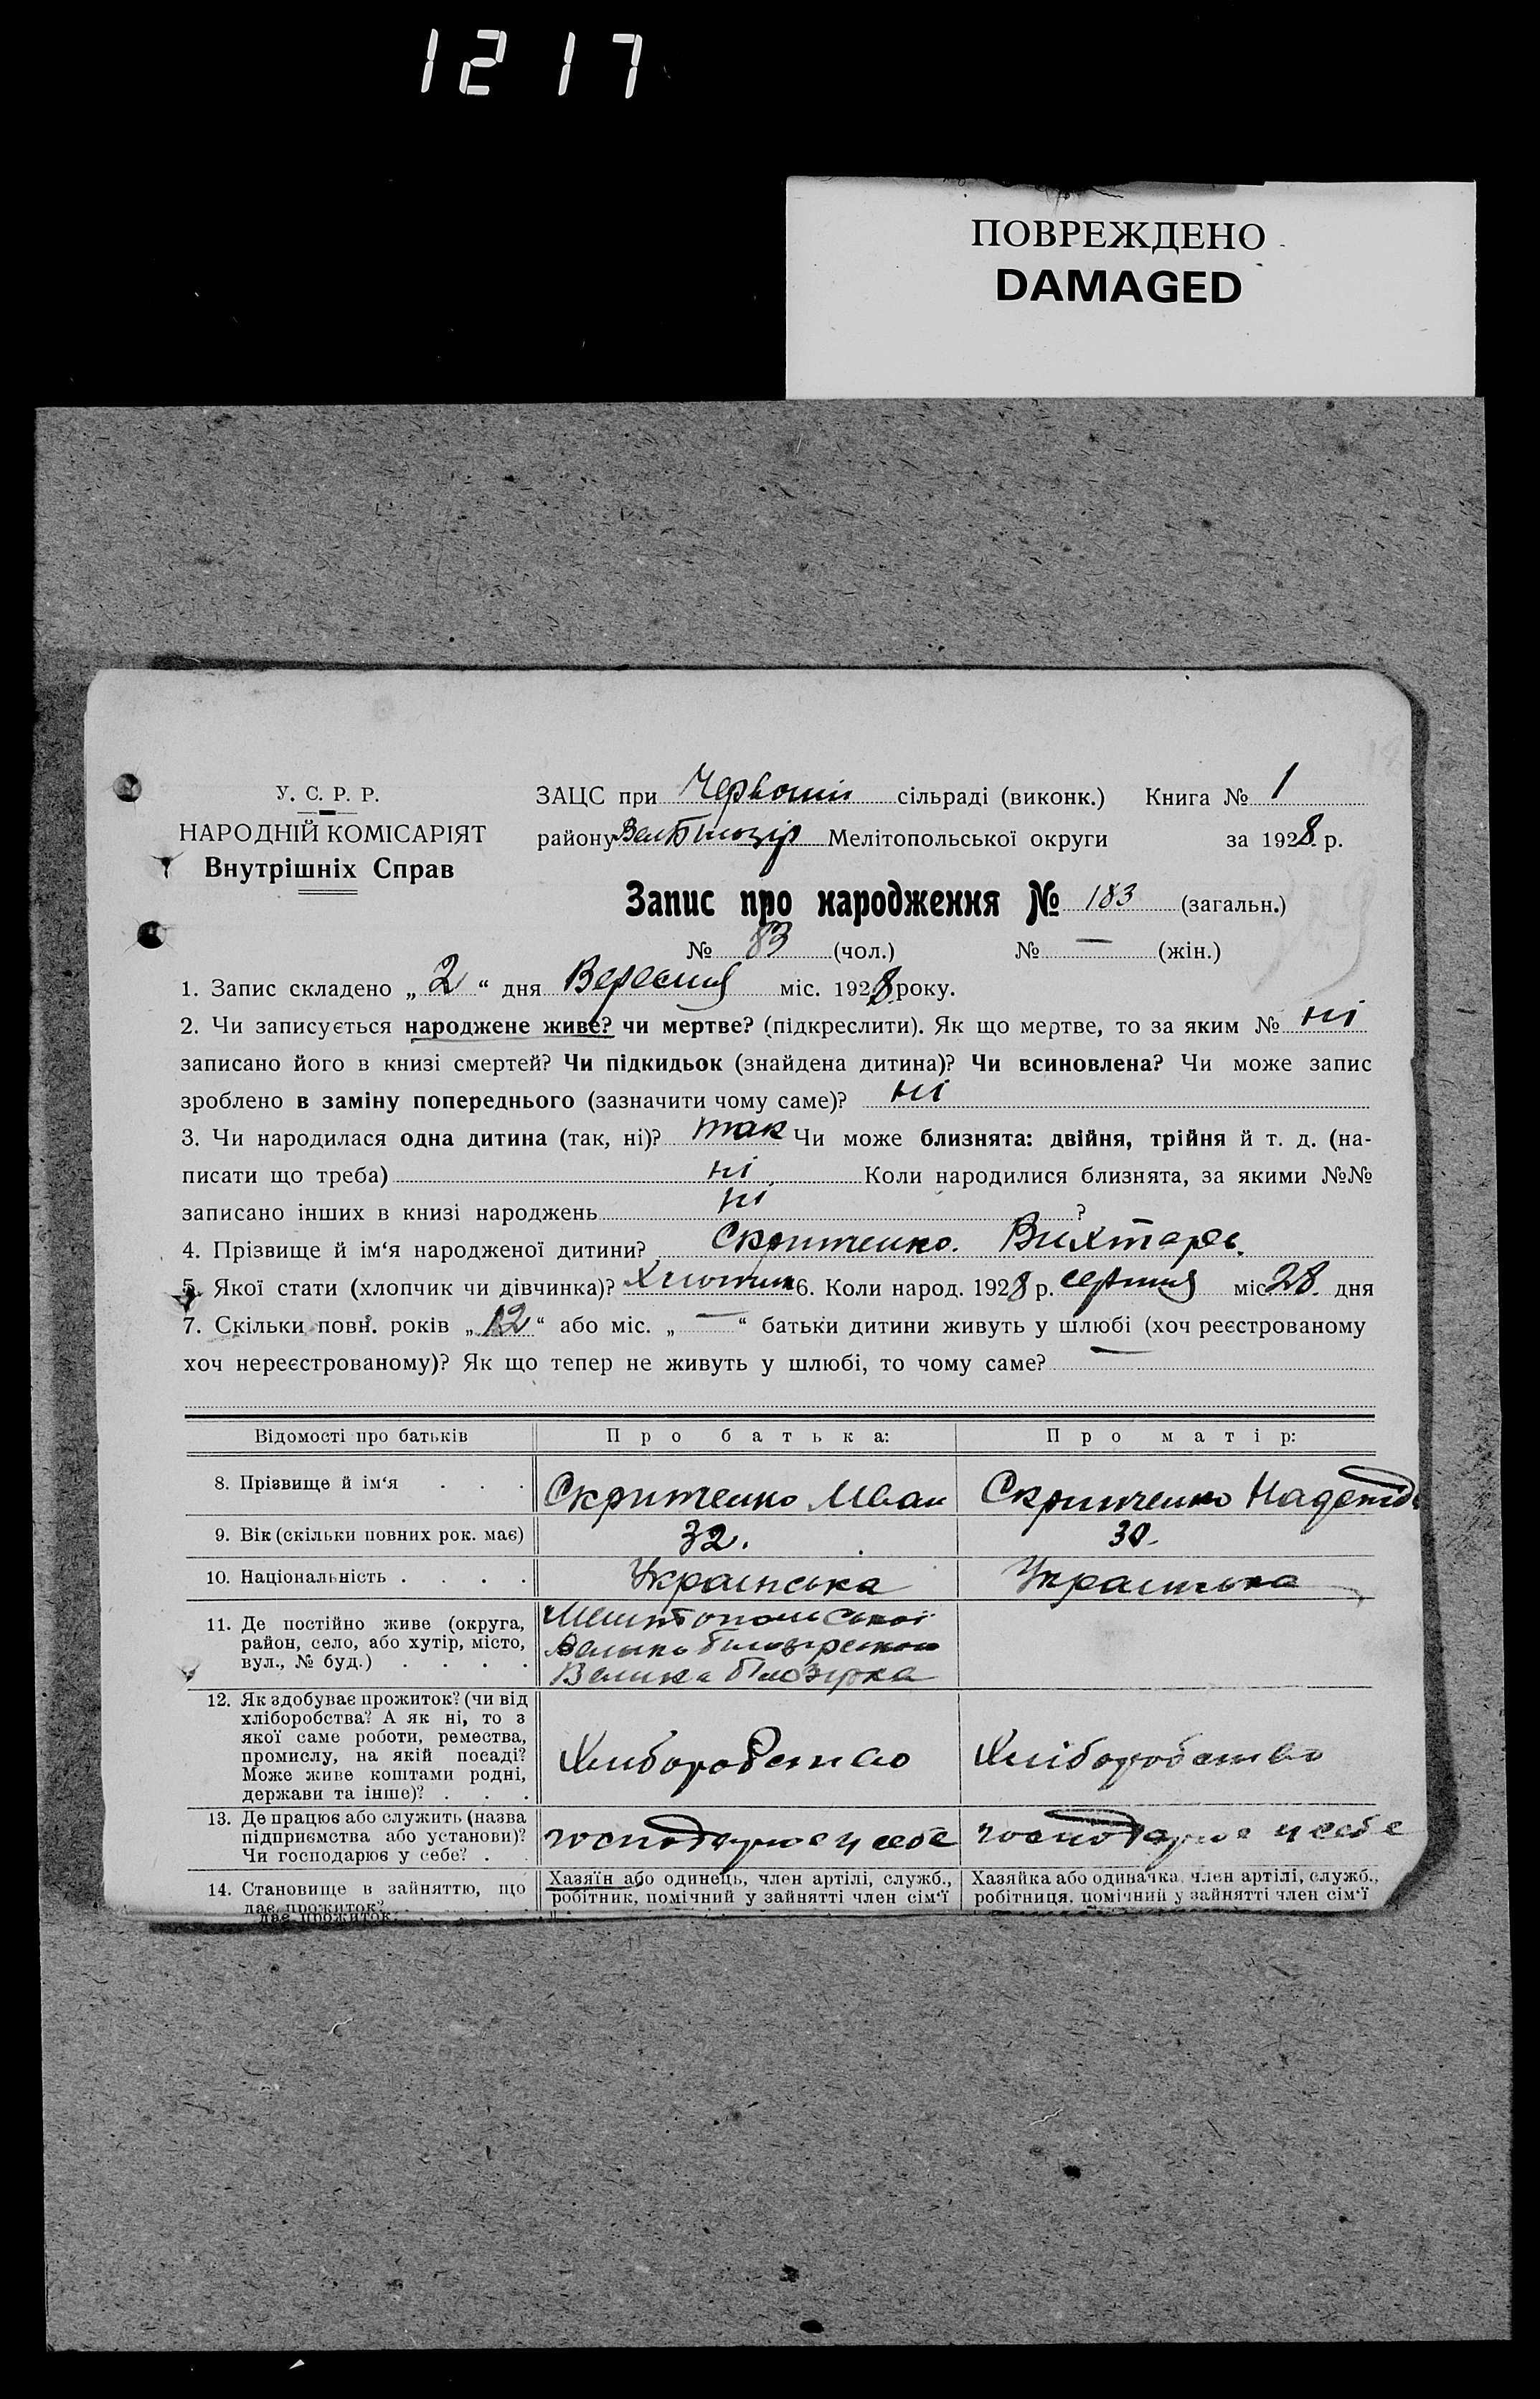 1217
ПОВРЕЖДЕНО
DAMAGED
У. С. Р. Р.
НАРОДНІЙ КОМІСАРІЯТ
Внутрішніх Справ
ЗАЦС при Червоній сільраді (виконк.) Книга № 1
району Мелітопольської округи за 1928 р.
Запис про народження № 183 (загальн.)
№ 83 (чол.) № — (жін.)
1. Запис складено „2“ дня Вересня міс. 1928 року.
2. Чи записується народжене живе? чи мертве? (підкреслити). Як що мертве, то за яким № ні
записано його в книзі смертей? Чи підкидьок (знайдена дитина)? Чи всиновлена? Чи може запис
зроблено в заміну попереднього (зазначити чому саме)? ні
3. Чи народилася одна дитина (так, ні)? так Чи може близнята: двійня, трійня й т. д. (на-
писати що треба) ні Коли народилися близнята, за якими №№
записано інших в книзі народжень ні ?
4. Прізвище й ім‘я народженої дитини? Скрипченко.
5. Якої стати (хлопчик чи дівчинка)? Хлопчик 6. Коли народ. 1928 р. серпня міс. 28 дня
7. Скільки повн. років „12“ або міс. „—“ батьки дитини живуть у шлюбі (хоч реєстрованому
хоч нереєстрованому)? Як що тепер не живуть у шлюбі, то чому саме? —
Відомості про батьків Про батька: Про матір:
8. Прізвище й ім‘я . . . Скрипченко Иван Скрипченко
9. Вік (скільки повних рок. має) 32. 30.
10. Національність . . . . Українська Українська
11. Де постійно живе (округа,
район, село, або хутір, місто,
вул., № буд.) . . . .
Мелітопольської
Велика Білозірка
12. Як здобуває прожиток? (чи від
хліборобства? А як ні, то з
якої саме роботи, ремества,
промислу, на якій посаді?
Може живе коштами родні,
держави та інше)? . . .
Хліборобство Хліборобство
13. Де працює або служить (назва
підприємства або установи)?
Чи господарює у себе? . .
господарює у себе господарює у себе
14. Становище в зайняттю, що
дає прожиток?
Хазяїн або одинець, член артілі, служб.,
робітник, помічний у зайнятті член сім‘ї
Хазяйка або одиначка, член артілі, служб.,
робітниця, помічний у зайнятті член сім‘ї
дає прожиток?